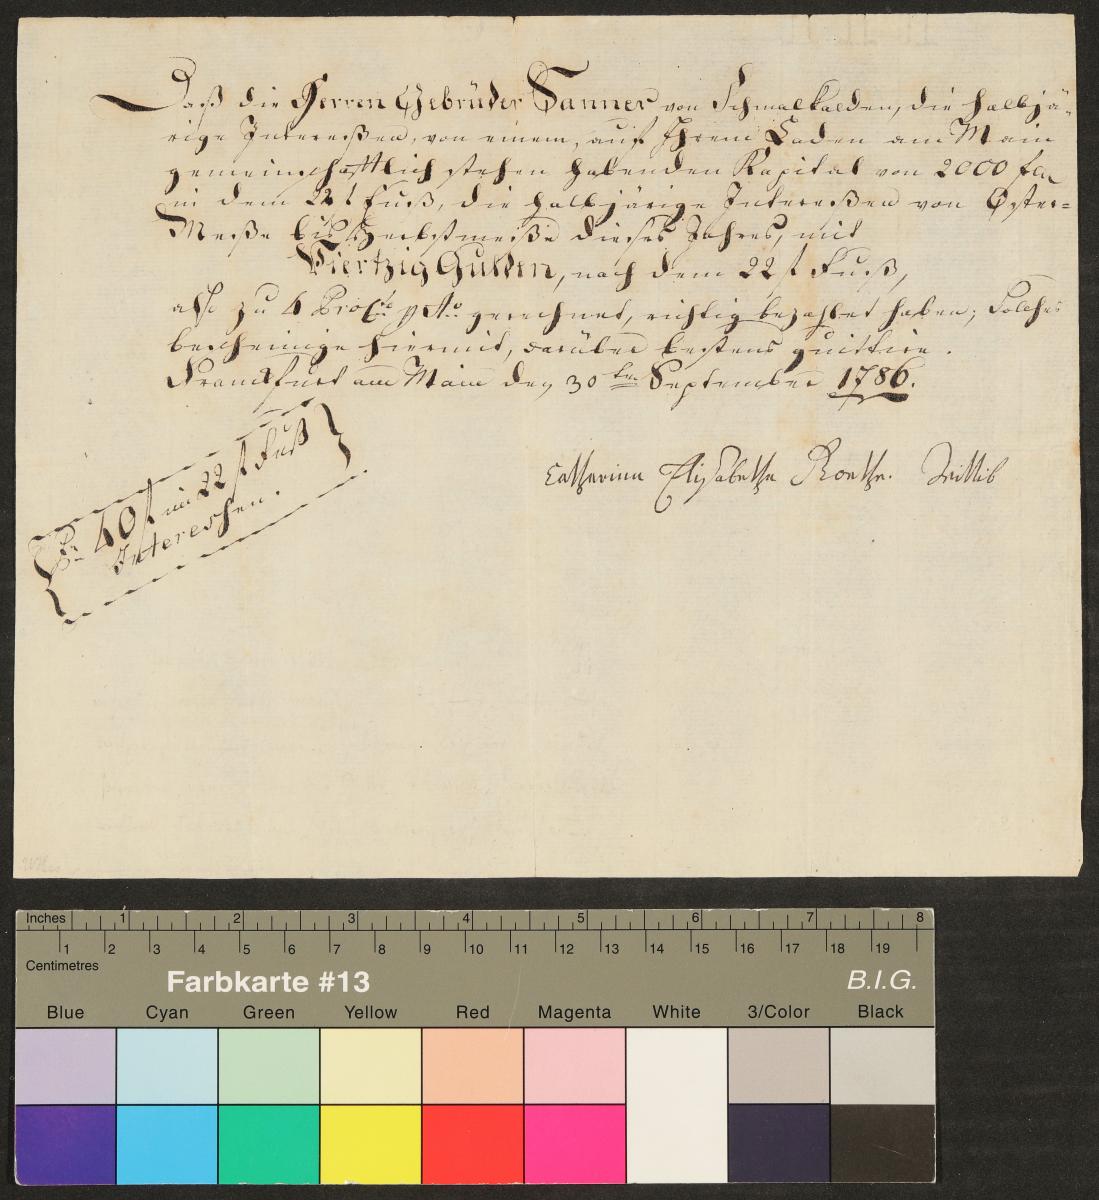 Daß die Herren Gebrüder Sanner von Schmalkalden, die halbjä-
rige Intereßen, von einem, auf Ihrem Laden am Main
gemeinschafftlich stehen habenden Kapital von 2000 fl
in dem 22 f Fuß, die halbjärige Intereßen von Oster-
Meße biß Herbstmeße dieses Jahres, mit
Viertzig Gulden, nach dem 22 f Fuß,
also zu 4 ProCto pr Ao gerechnet, richtig bezahlet haben; Solches
bescheinige hiermit, darüber bestens quittire.
Franckfurt am Main den 30ten September 1786.
Catharina Elisabetha Wittib
Pr 40 f im 22 f Fuß
Interessen.
Inches 1 2 3 4 5 6 7 8
1 2 3 4 5 6 7 8 9 10 11 12 13 14 15 16 17 18 19
Centimetres
Farbkarte #13 B.I.G.
Blue Cyan Green Yellow Red Magenta White 3/Color Black